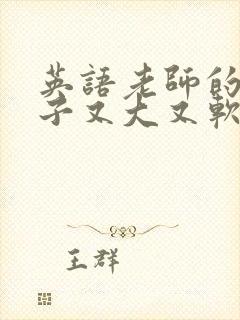 英語老師的
子又大又軟
王群